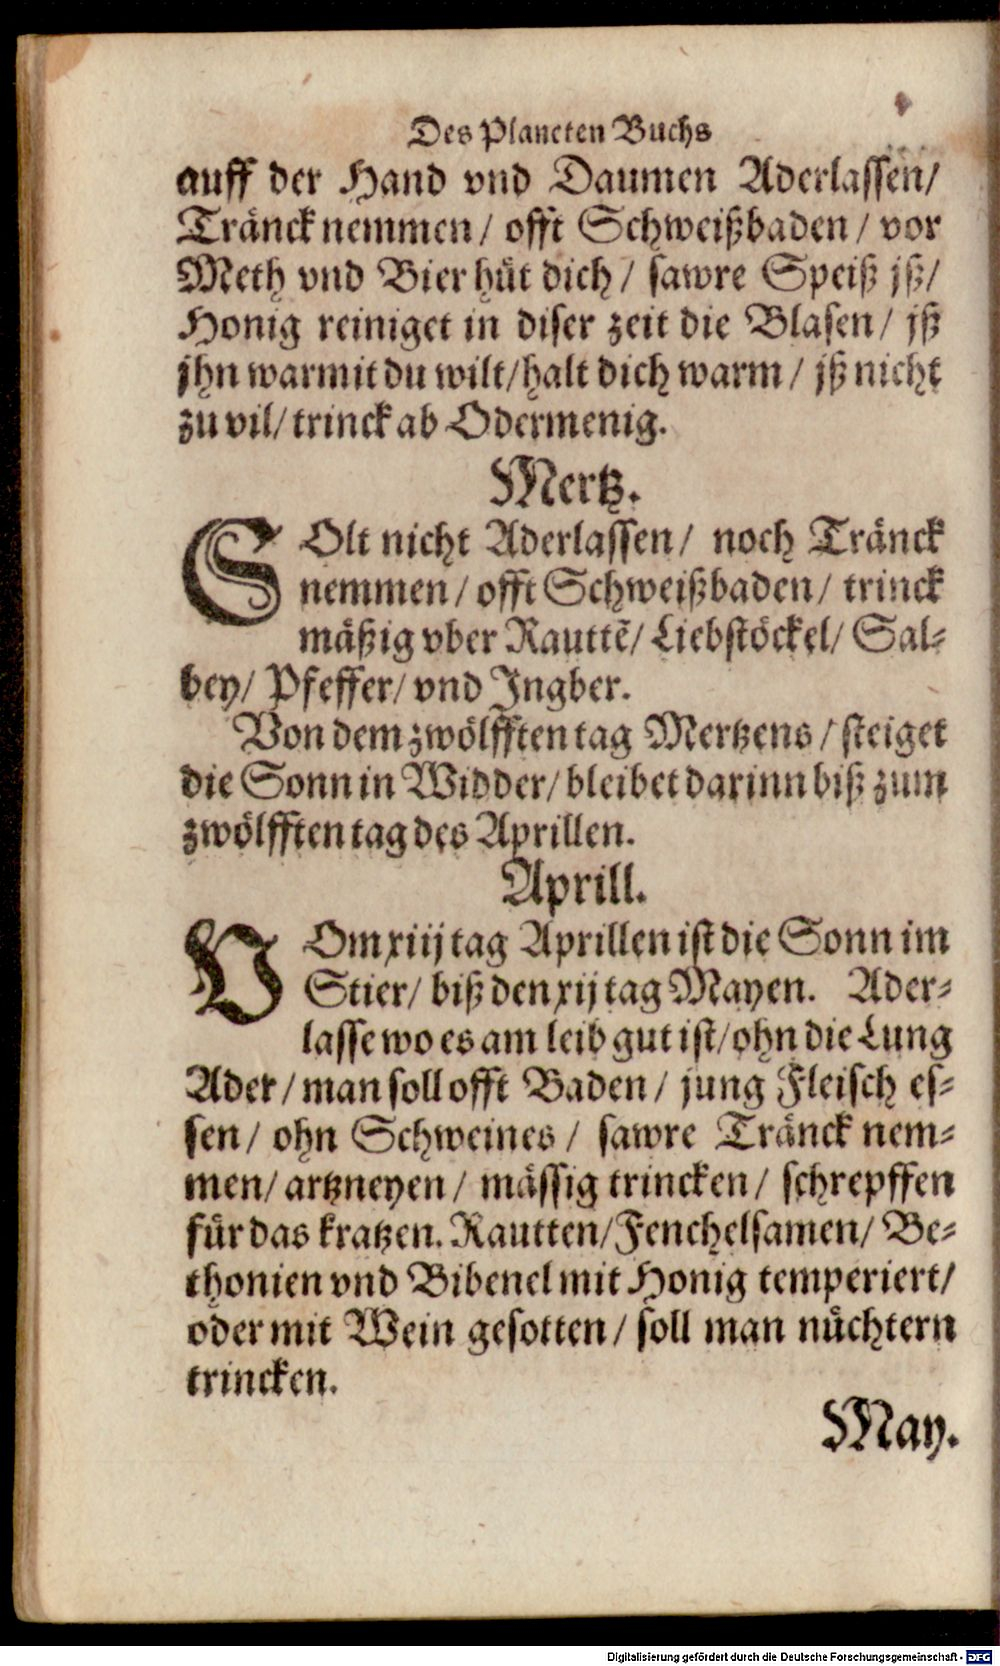 Des Planeten Buchs
auff der Hand vnd Daumen Aderlassen/
Tränck nemmen/ offt Schweißbaden/ vor
Meth vnd Bier hüt dich/ sawre Speiß jß/
Honig reiniget in diser zeit die Blasen/ jß
jhn warmit du wilt/ halt dich warm/ jß nicht
zu vil/ trinck ab Odermenig.
Mertz.
SOlt nicht Aderlassen/ noch Tränck
nemmen/ offt Schweißbaden/ trinck
mäßig vber Rauttẽ/ Liebstöckel/ Sal-
bey/ Pfeffer/ vnd Jngber.
Von dem zwölfften tag Mertzens/ steiget
die Sonn in Widder/ bleibet darinn biß zum
zwölfften tag des Aprillen.
Aprill.
VOm xiij tag Aprillen ist die Sonn im
Stier/ biß den xij tag Mayen. Ader-
lasse wo es am leib gut ist/ ohn die Lung
Ader/ man soll offt Baden/ jung Fleisch es-
sen/ ohn Schweines/ sawre Tränck nem-
men/ artzneyen/ mässig trincken/ schrepffen
für das kratzen. Rautten/ Fenchelsamen/ Be-
thonien vnd Bibenel mit Honig temperiert/
oder mit Wein gesotten/ soll man nüchtern
trincken.
May.
Digitalisierung gefördert durch die Deutsche Forschungsgemeinschaft - DFG